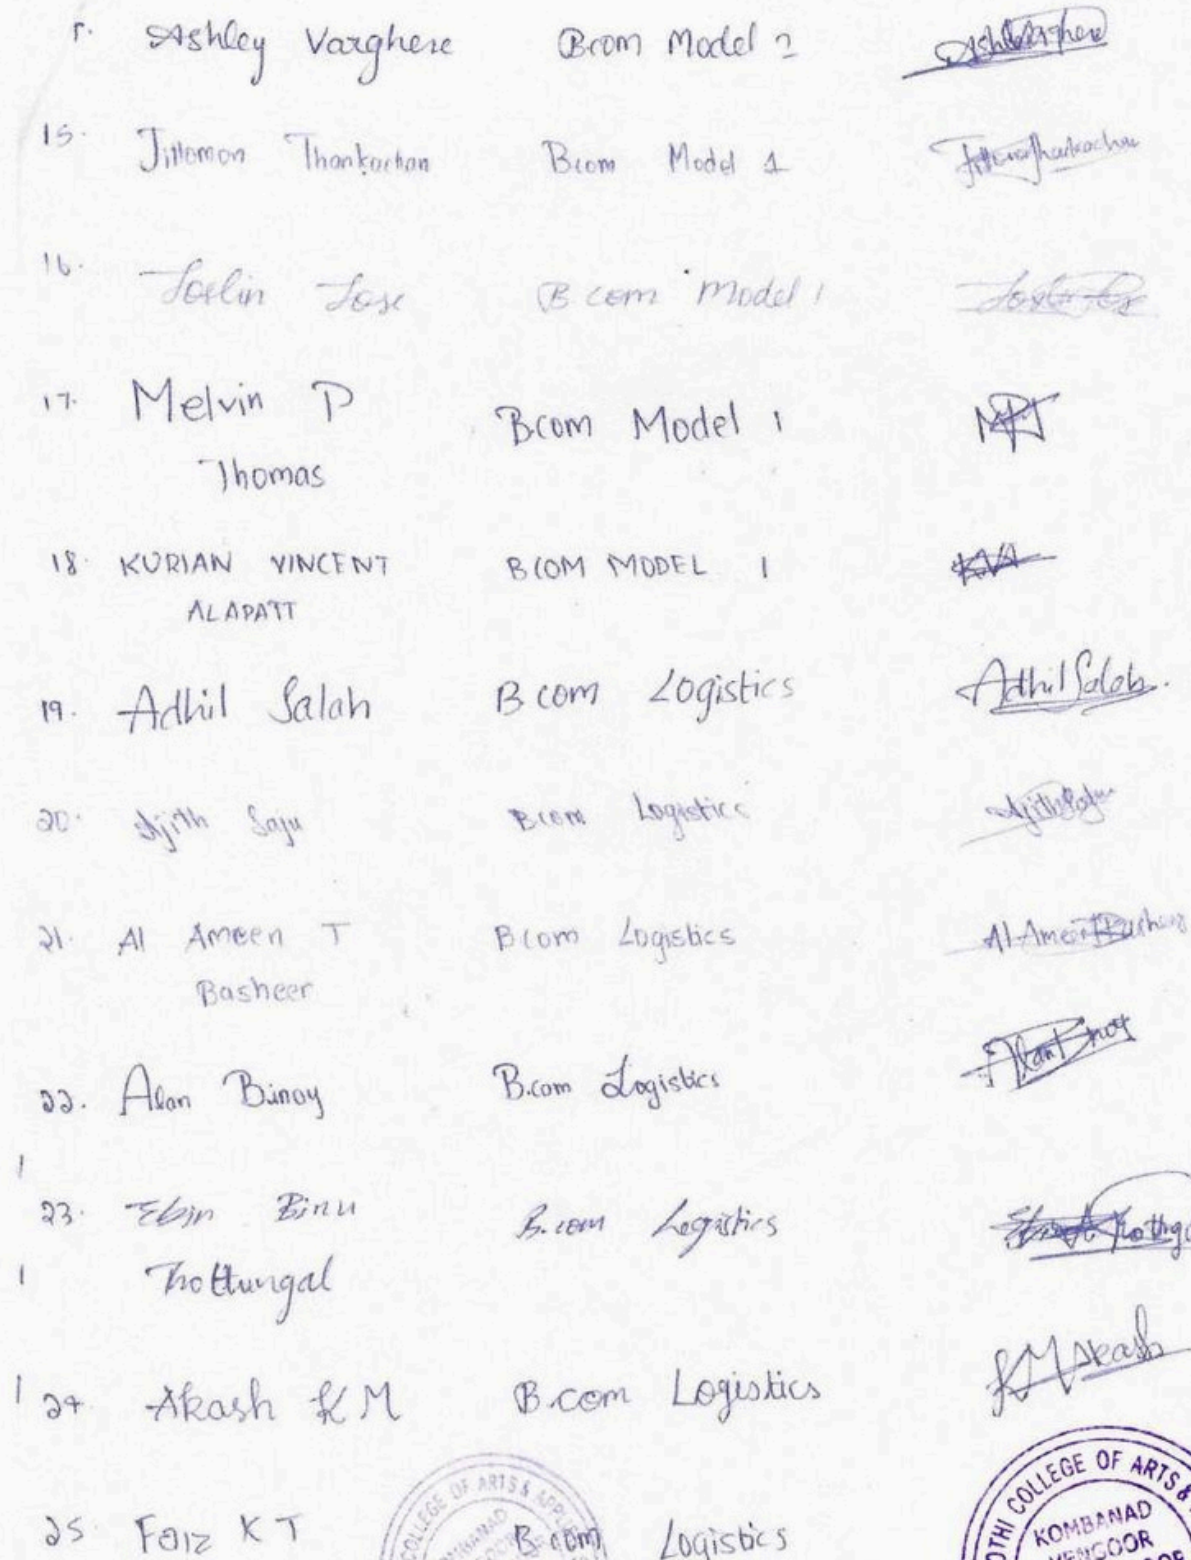 Ashley Varghese Bcom Model 2 Ashley Varghese
15. Jittomon Thankachan Bcom Model 1 Jittomon Thankachan
16. Joslin Jose B com Model 1 Joslin Jose
17. Melvin P Bcom Model 1 MPT
Thomas
18. KURIAN VINCENT BCOM MODEL 1 KVA
ALAPATT
19. Adhil Salah B com Logistics Adhil Salah.
20. Ajith Saju Bcom Logistics Ajith Saju
21. Al Ameen T Bcom Logistics Al Ameen Basheer
Basheer
22. Alan Binoy B.com Logistics Alan Binoy
23. Ebin Binu B.com Logistics
Thottungal
24 Akash K M B.com Logistics K M Akash
25 Faiz K T B.com Logistics
COLLEGE OF ARTS & APPL
OTHI COLLEGE OF ARTS &
KOMBANAD
VENGOOR